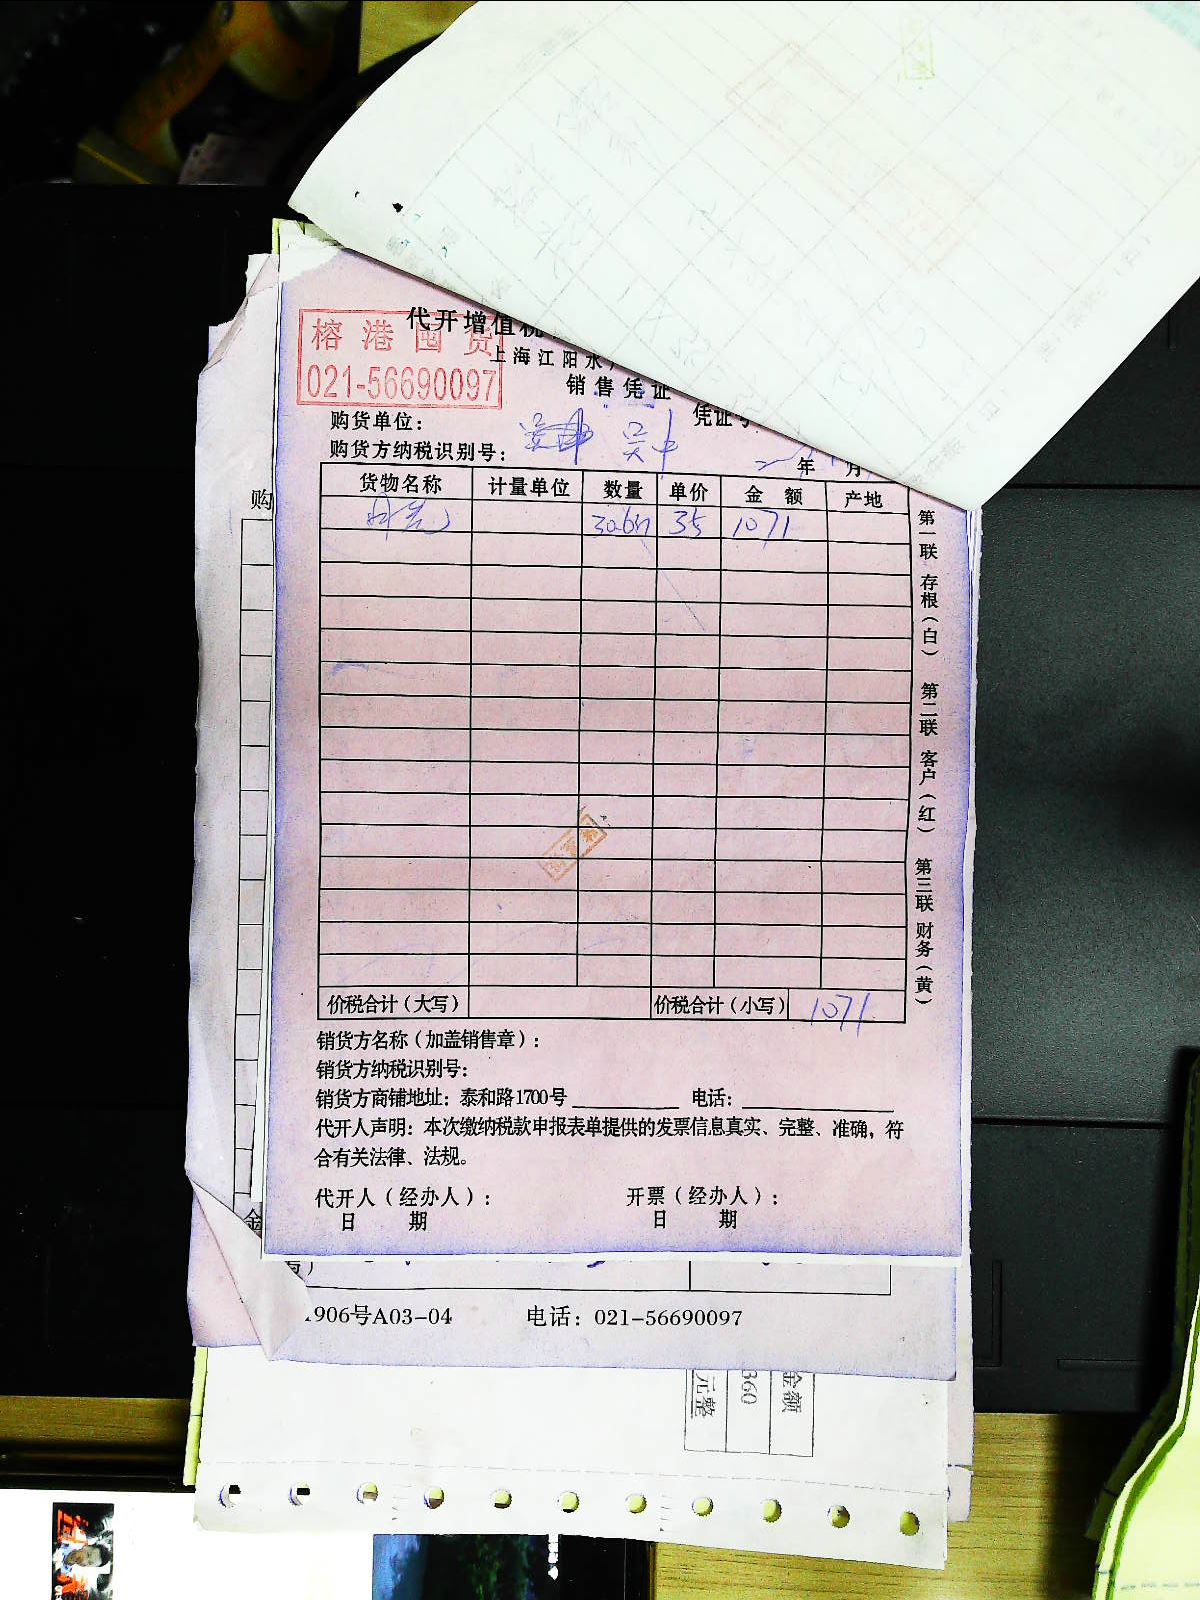 榕港囤货
021-56690097
代开增值税
上海江阳水
销售凭证
购货单位：
凭证号
购货方纳税识别号：
吴中
年 月
货物名称 计量单位 数量 单价 金额 产地
35 1071
第一联 存根（白） 第二联 客户（红） 第三联 财务（黄）
价税合计（大写） 价税合计（小写） 1071
销货方名称（加盖销售章）：
销货方纳税识别号：
销货方商铺地址：泰和路1700号 电话：
代开人声明：本次缴纳税款申报表单提供的发票信息真实、完整、准确，符
合有关法律、法规。
代开人（经办人）： 开票（经办人）：
日 期 日 期
购
金
写）
906号A03-04 电话：021-56690097
金额
360
元整